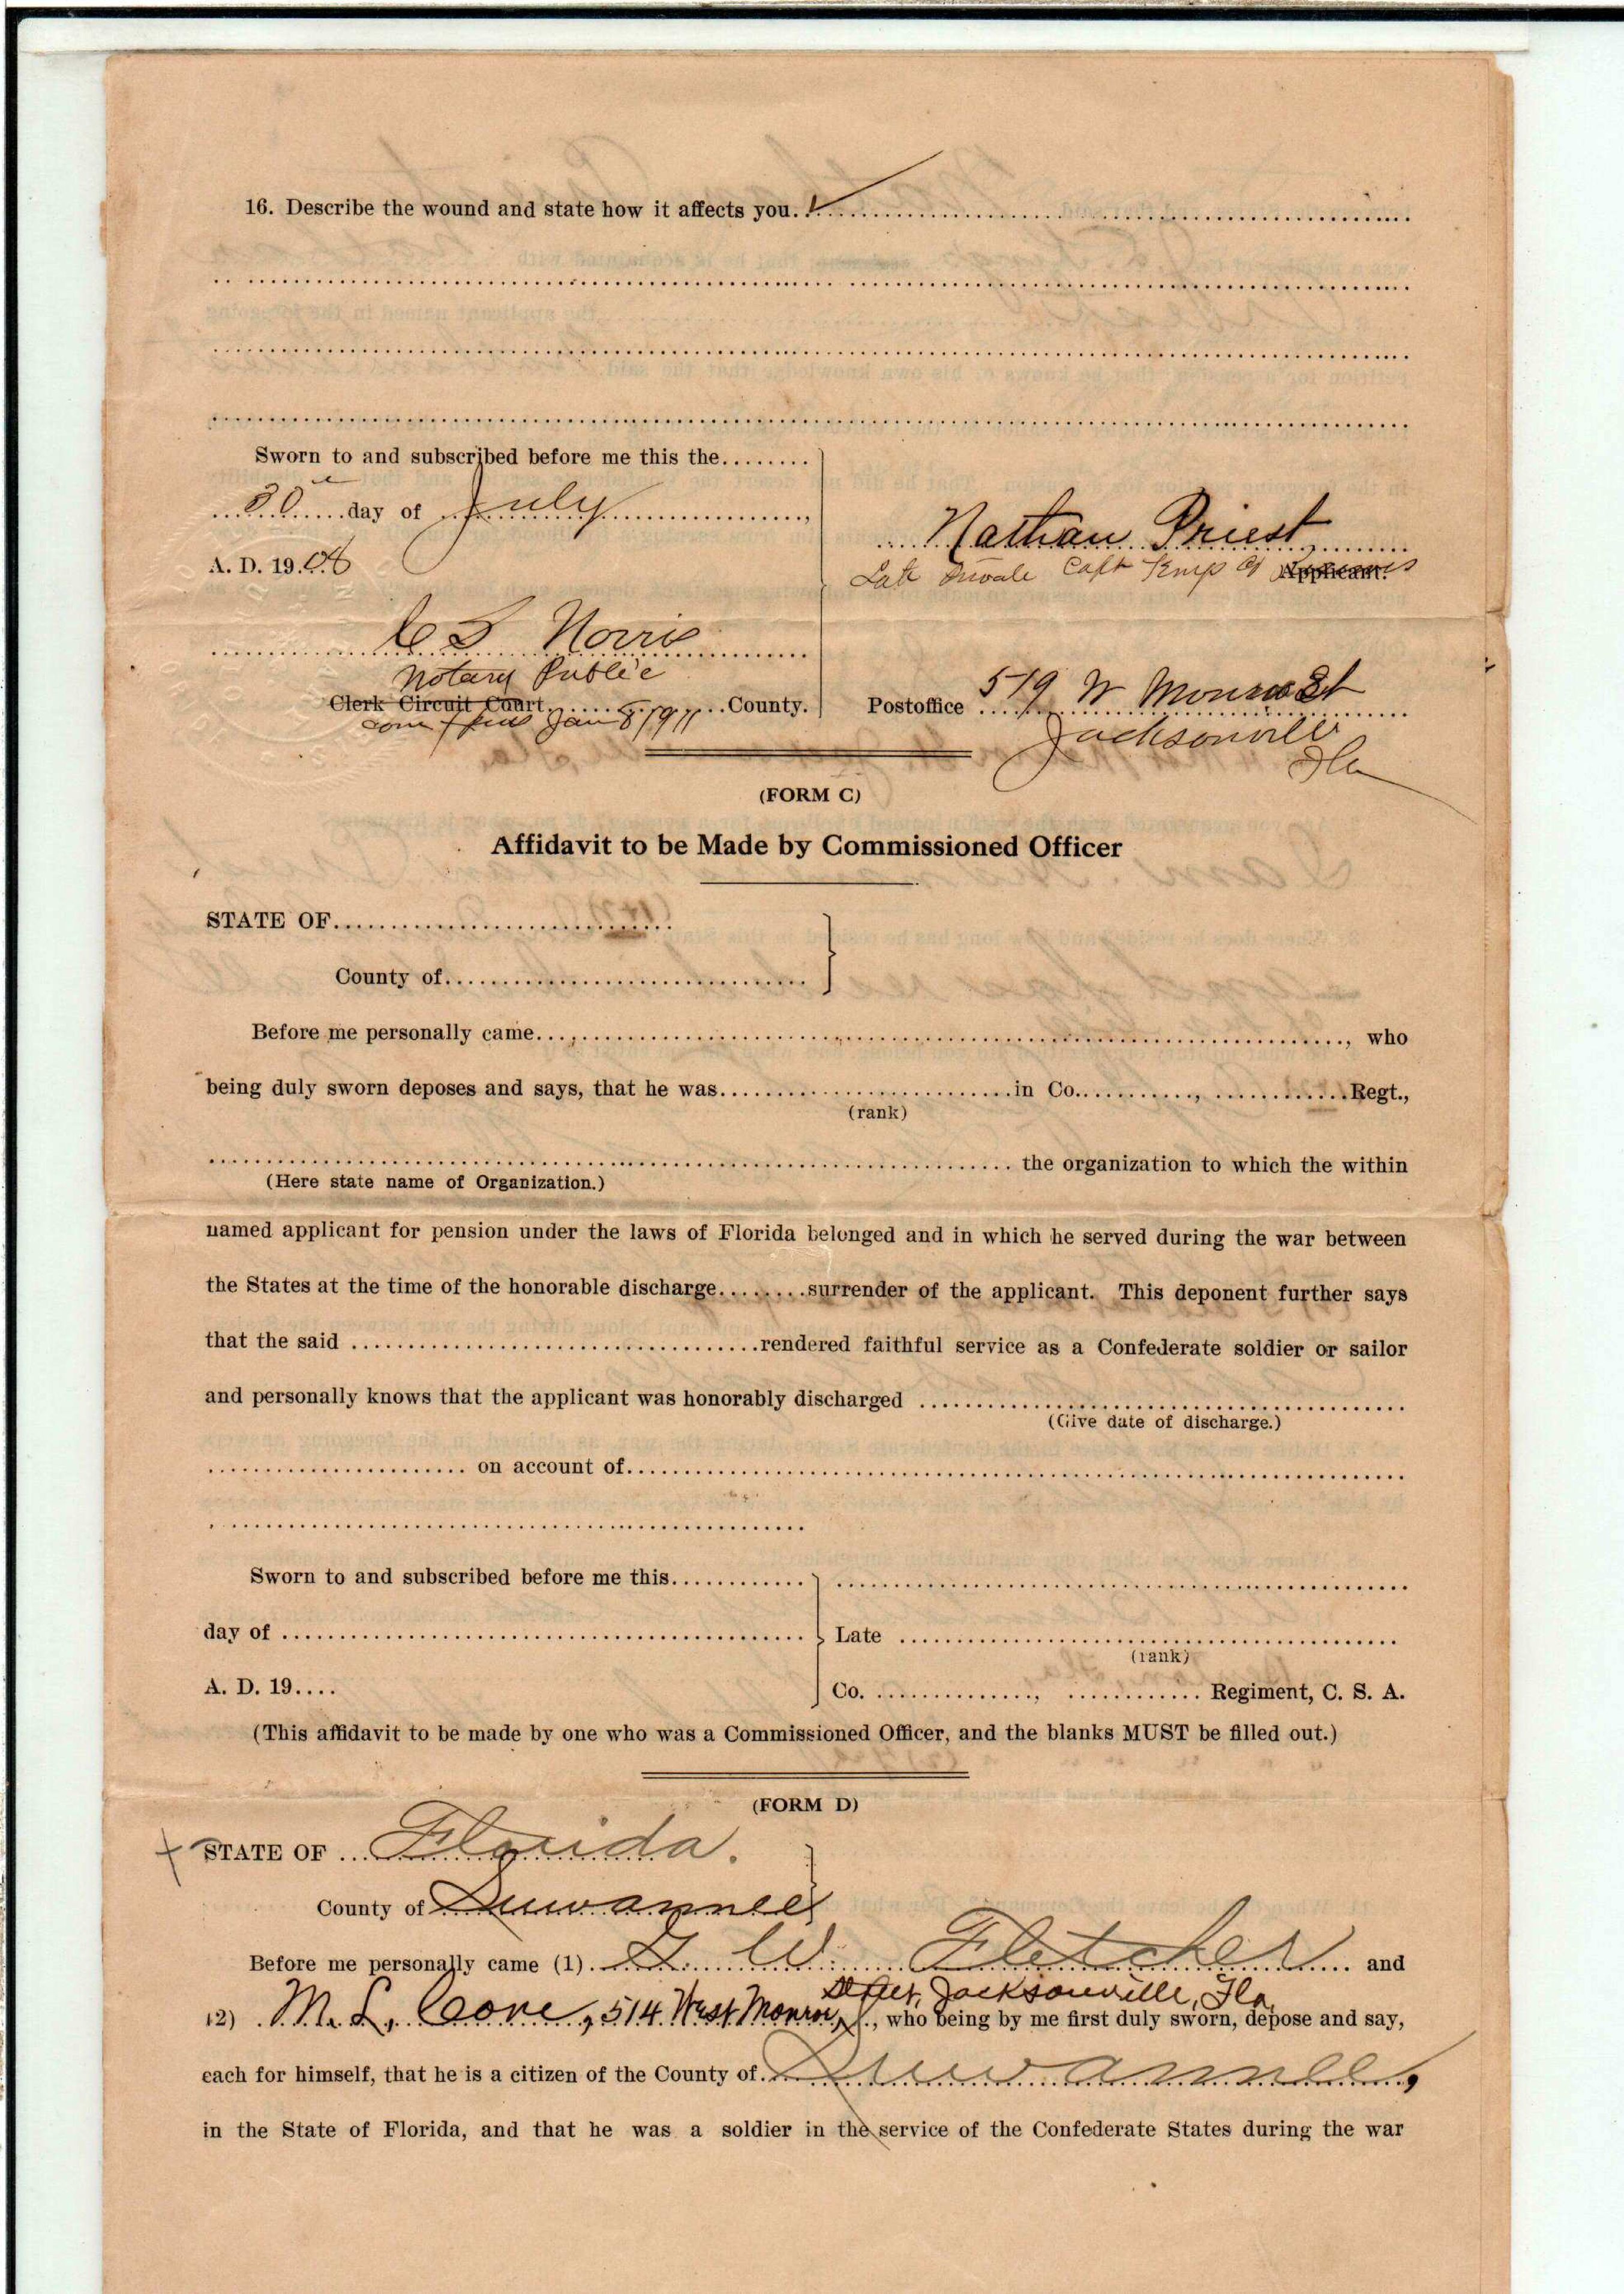 16. Describe the wound and state how it affects you.
Sworn to and subscribed before me this the
30 day of July
A. D. 1908
Nathan Priest
Late Private Capt Kings Co
Applicant.
C S Norris
Notary Public
Clerk Circuit Court County.
Com Jan 8 1911
Postoffice 519 W Monroe St
Jacksonville
Fla
(FORM C)
Affidavit to be Made by Commissioned Officer
STATE OF
County of
Before me personally came , who
being duly sworn deposes and says, that he was in Co. , Regt.,
(rank)
the organization to which the within
(Here state name of Organization.)
named applicant for pension under the laws of Florida belonged and in which he served during the war between
the States at the time of the honorable discharge surrender of the applicant. This deponent further says
that the said rendered faithful service as a Confederate soldier or sailor
and personally knows that the applicant was honorably discharged
(Give date of discharge.)
on account of
Sworn to and subscribed before me this
day of
Late
(rank)
A. D. 19
Co. , Regiment, C. S. A.
(This affidavit to be made by one who was a Commissioned Officer, and the blanks MUST be filled out.)
(FORM D)
STATE OF Florida.
County of Suwannee
Before me personally came (1) G. W. Fletcher and
Street, Jacksonville, Fla,
(2) M. L. Cone, 514 West Monroe, who being by me first duly sworn, depose and say,
each for himself, that he is a citizen of the County of Suwannee,
in the State of Florida, and that he was a soldier in the service of the Confederate States during the war